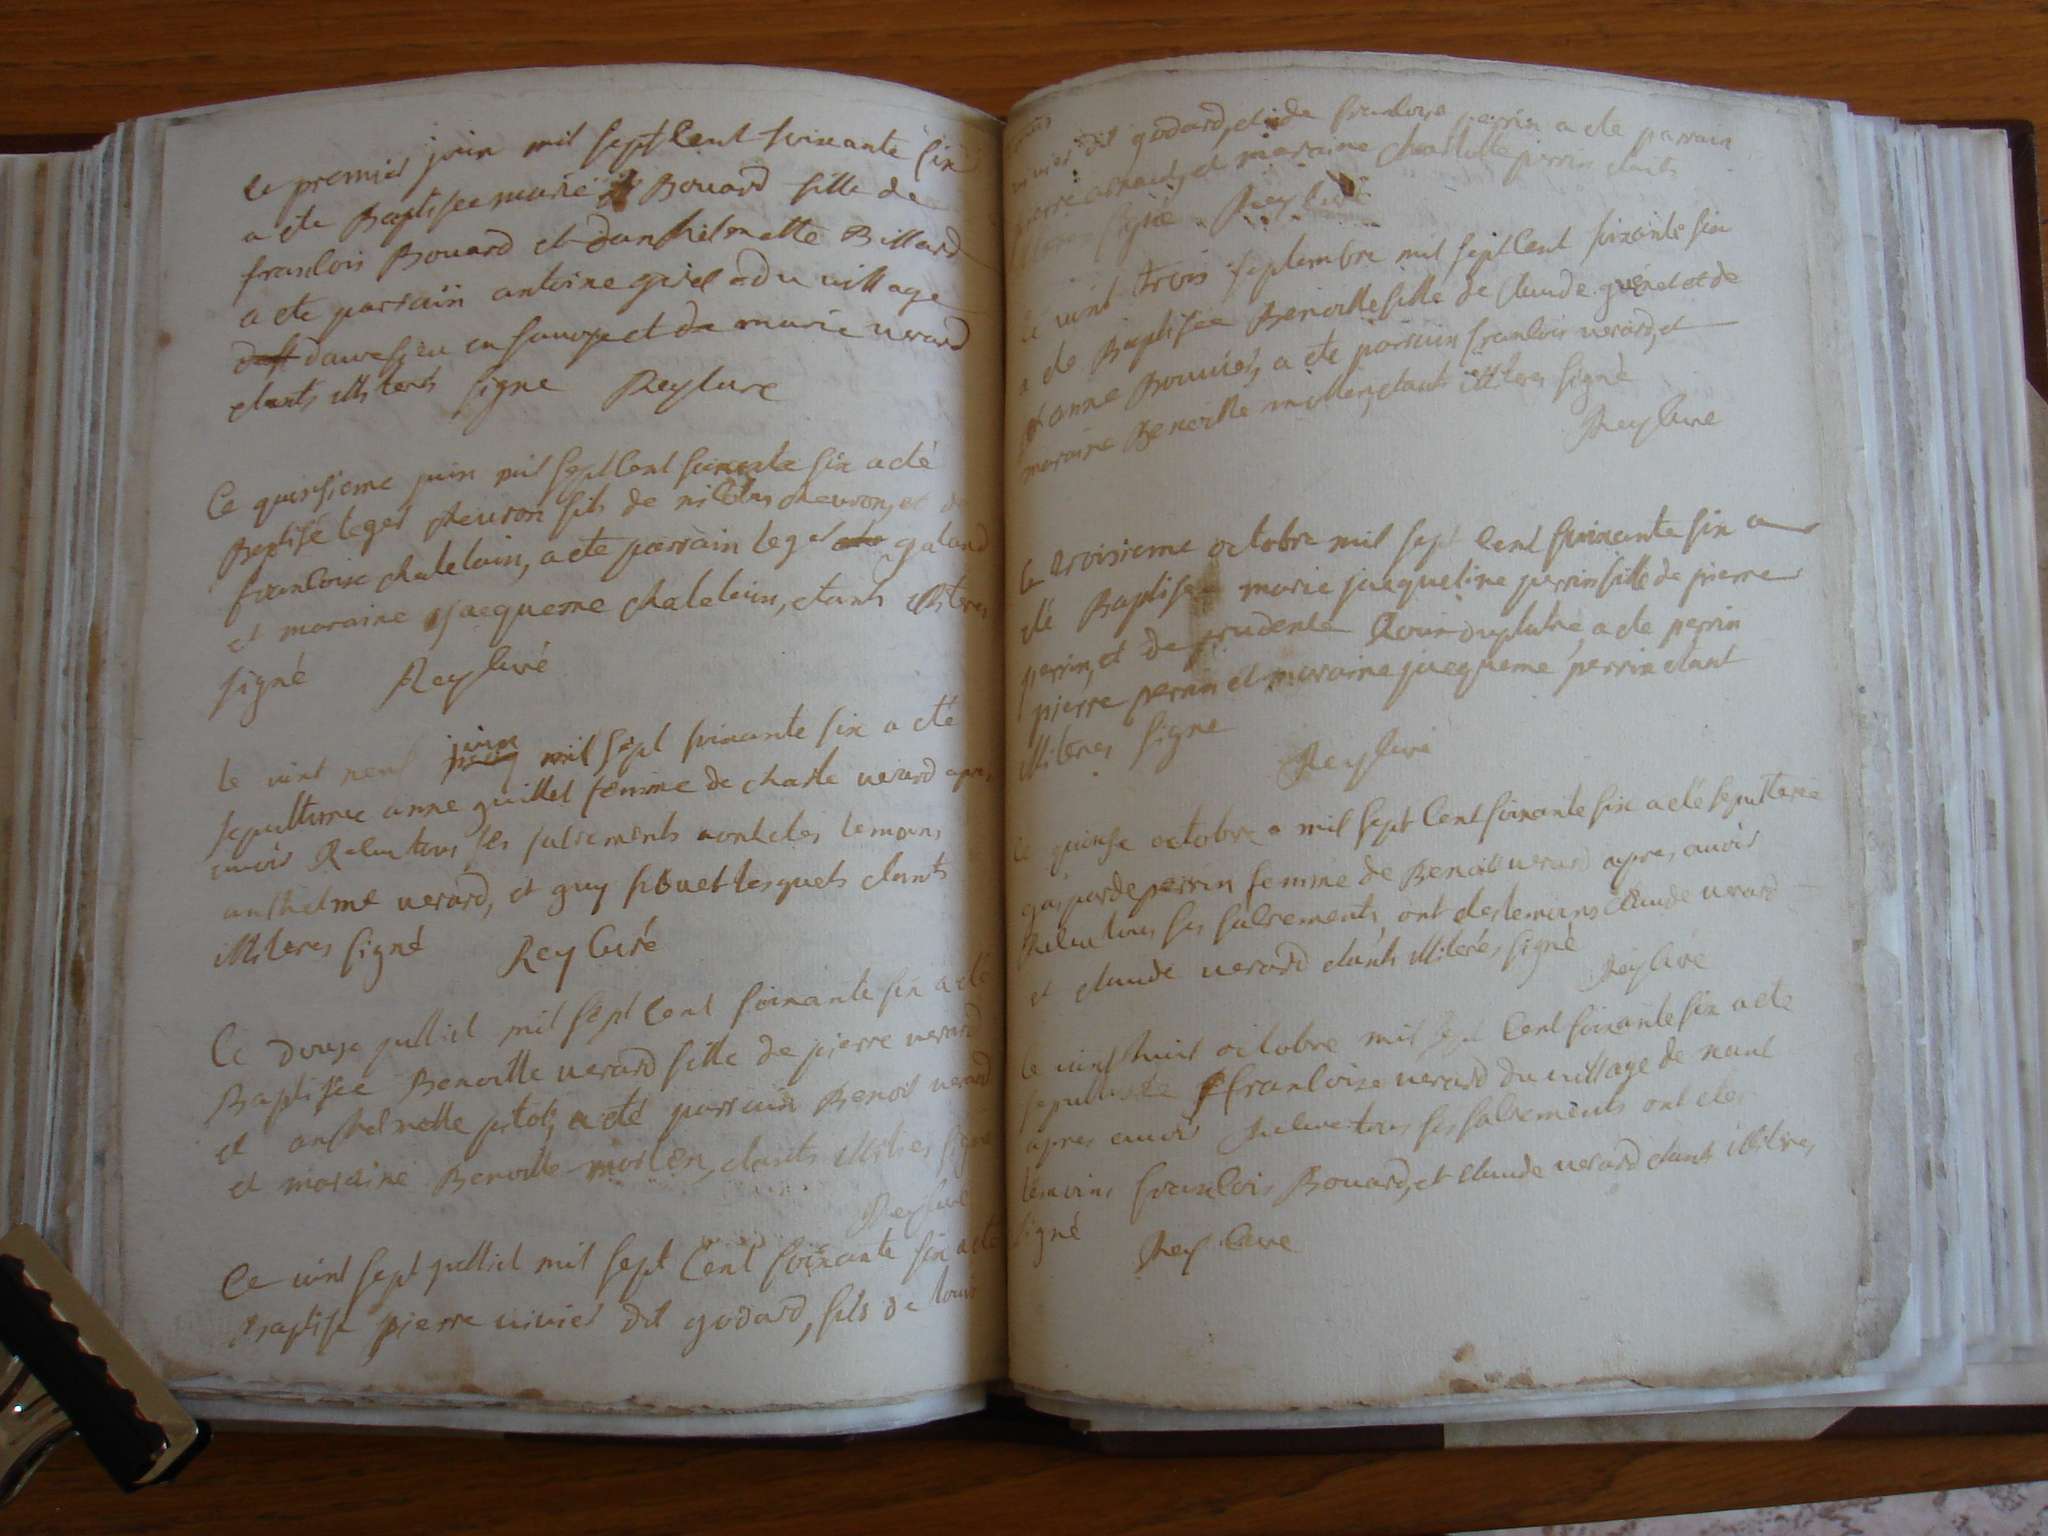 Le premier juin mil sept Cent soixante six
a ete Baptisee marie Bouard fille de
francois Bouard et danthelmette Billard
a ete parrain antoine du village
en savoye et de marie verard
etants illiterés signe Rey Cure
Ce quinsieme juin mil sept Cent soixante six a eté
Baptisé leger cheuron fils de nicolas cheuron, et de
francoise chatelain, a ete parrain leger galand
et maraine jacqueme chatelain, etants illiteres
signé Rey Curé
le vint neuf juin mil sept soixante six a eté
sepulturee anne guillet femme de charle verard apres
avoir Recu tous les sacrements ont etes temoins
anthelme verard, et guy sibuet lesquels etants
illiteres signé Rey Curé
Ce douze julliet mil sept Cent soixante six a eté
Baptisée Benoitte verard fille de pierre verard
et anthelmette pitot, a eté parrain Benoit verard
et maraine Benoitte morlen, etants illiteres signé
Rey Curé
Ce vint sept julliet mil sept Cent soixante six a eté
Baptise pierre vivier dit godard, fils de louis
vivier dit godard, et de francoise perrin a ete parrain
pierre et maraine charlotte perrin etants
signé Rey Curé
le vint trois septembre mil sept Cent soixante six
a ete Baptisée Benoitte fille de claude guenet et de
anne Bouvier, a ete parrain francois verard, et
maraine Benoitte etants illiteres signé
Rey Cure
le troisieme octobre mil sept Cent soixante six a
eté Baptisee marie jacqueline perrin fille de pierre
perrin, et de prudente a ete perrin
pierre perrin et maraine jacqueme perrin etant
illiteres signe
Rey Curé
le quinse octobre mil sept Cent soixante six a eté sepulturée
gasparde perrin femme de Benoit verard apres avoir
Recu tous ses sacrements, ont etes temoins claude verard
et claude verard etants illiterés signé
Rey Curé
le vint huit octobre mil sept Cent soixante six a ete
sepulturée francoise verard du village de nant
apres avoir Recu tous ses sacrements ont etes
temoins francois Bouard, et claude verard etant illiteres
signé Rey Cure